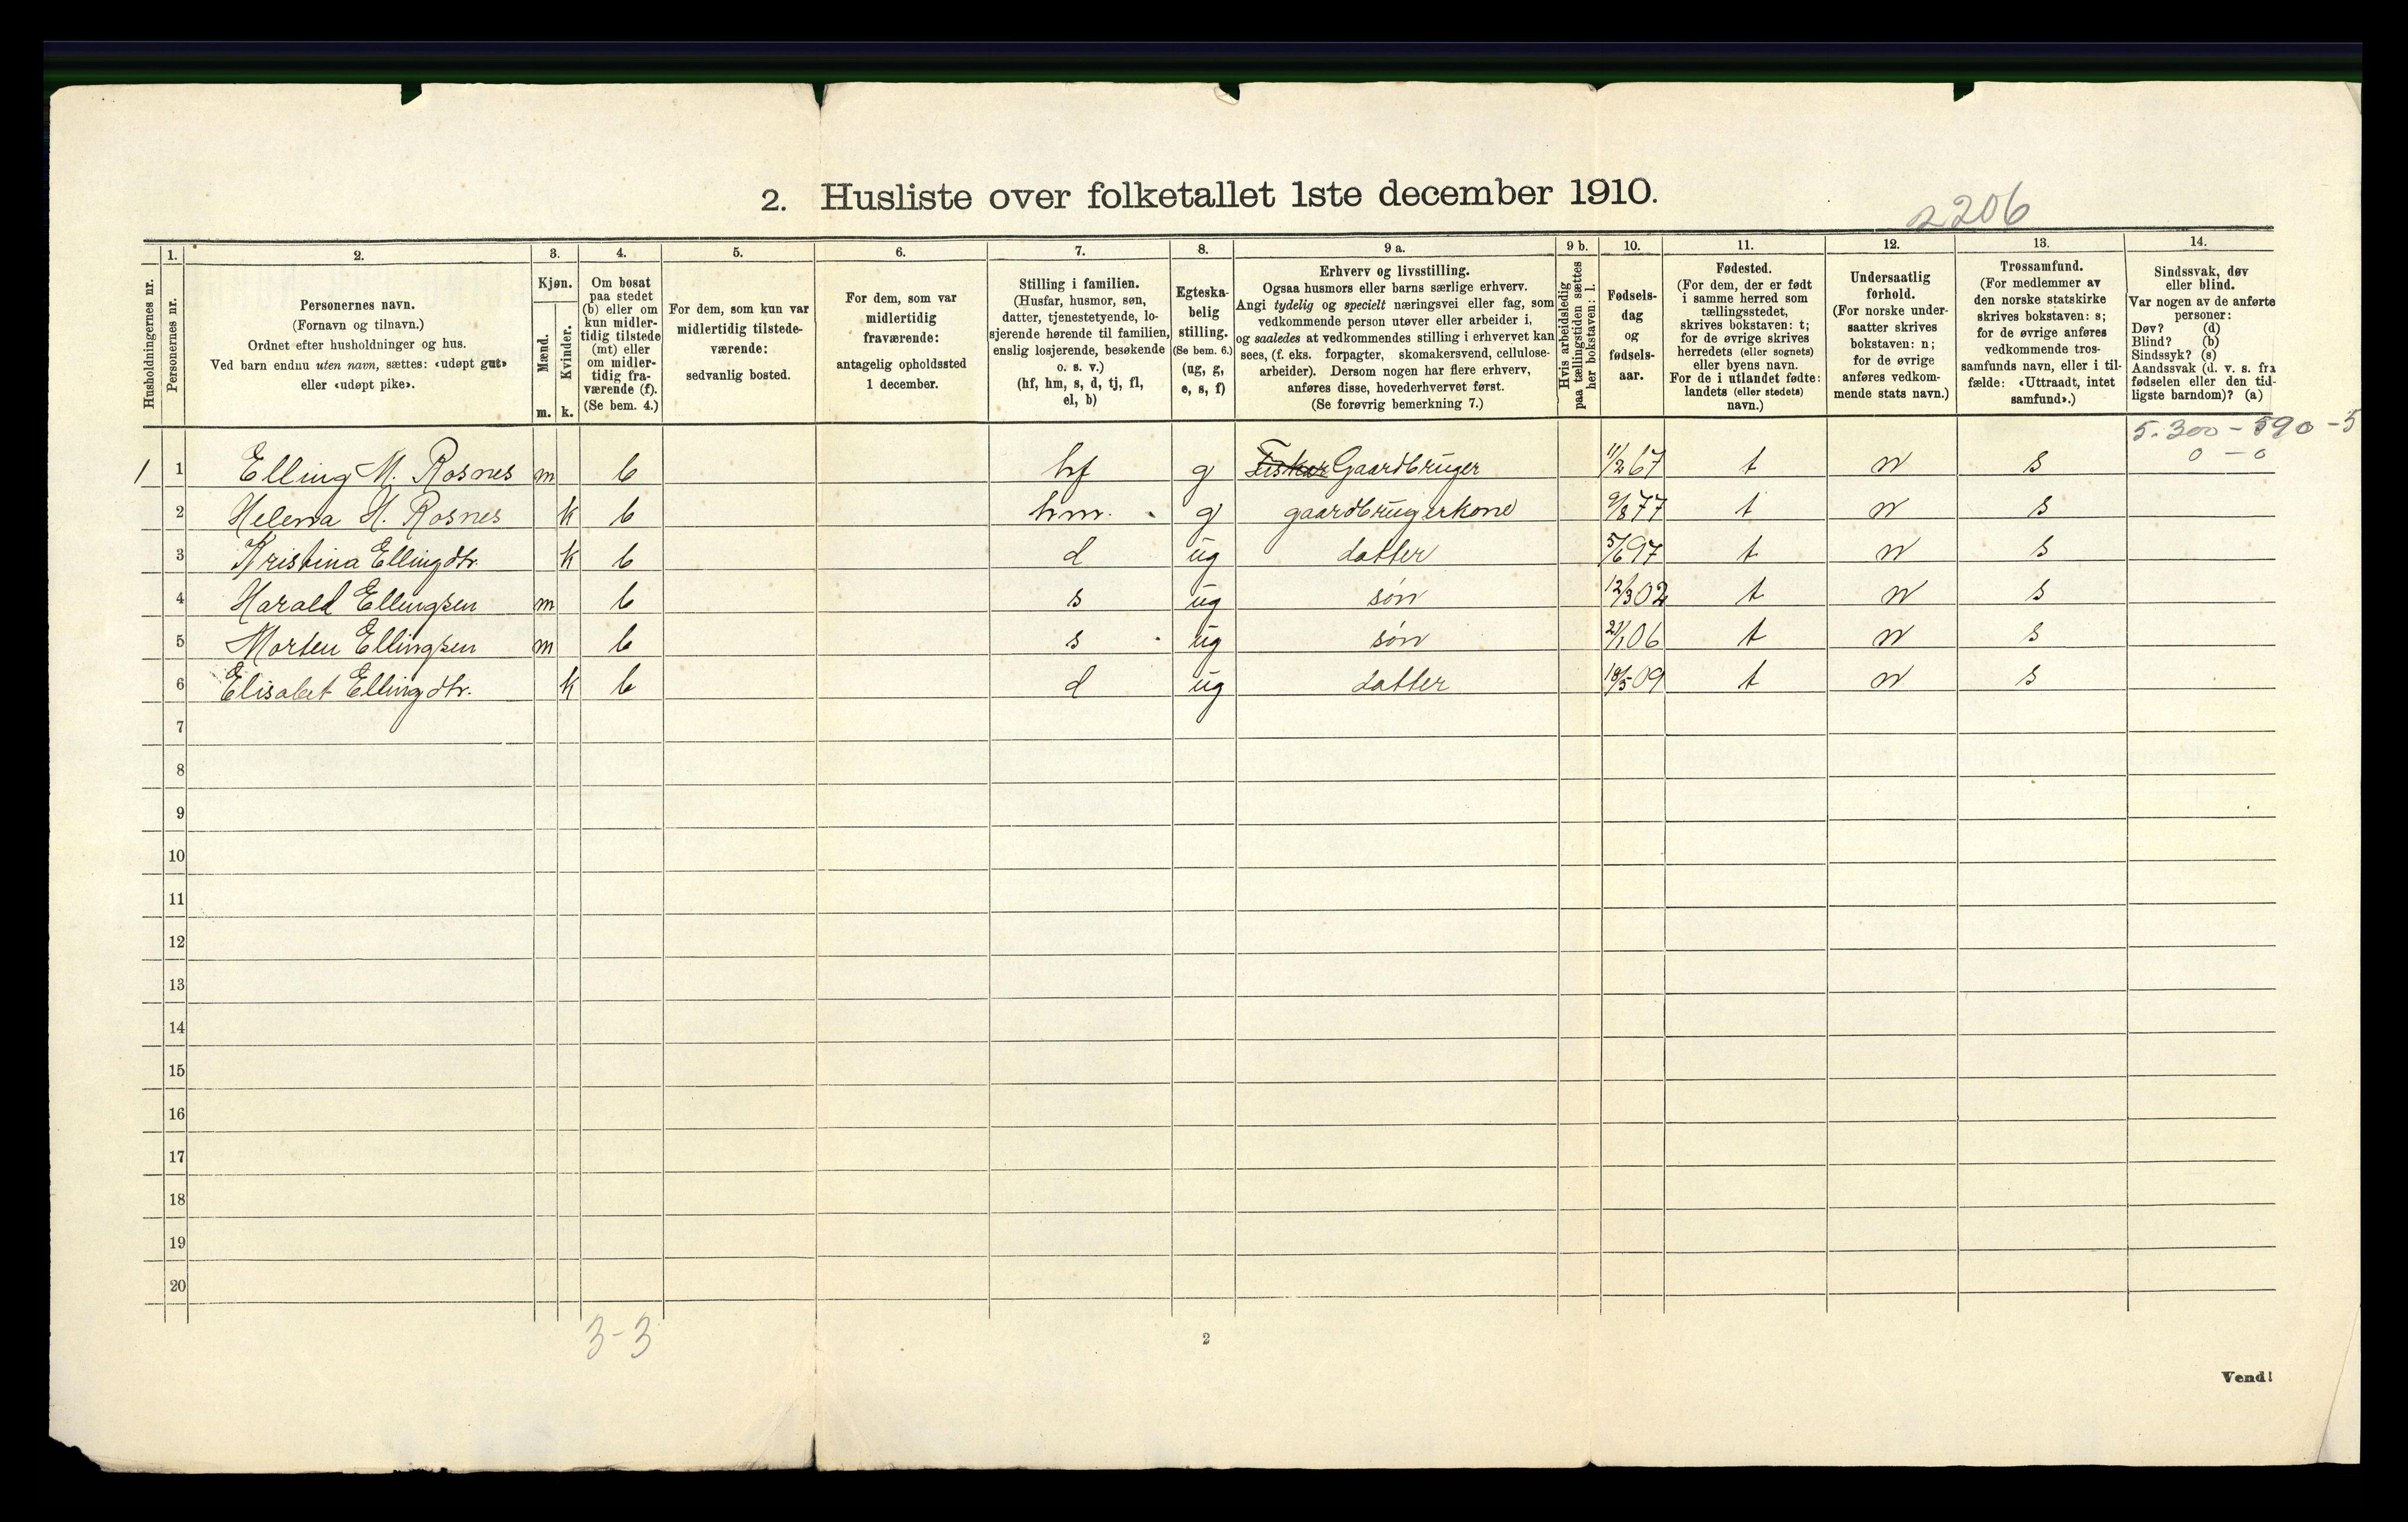 2. Husliste over folketallet 1ste december 1910.
2206
Husholdningernes nr.
1.
Personernes nr.
2.
Personernes navn.
(Fornavn og tilnavn.)
Ordnet efter husholdninger og hus.
Ved barn endnu uten navn, sættes: «udøpt gut»
eller «udøpt pike».
3.
Kjøn.
Mænd.
Kvinder.
m. k.
4.
Om bosat
paa stedet
(b) eller om
kun midler-
tidig tilstede
(mt) eller
om midler-
tidig fra-
værende (f).
(Se bem. 4.)
5.
For dem, som kun var
midlertidig tilstede-
værende:
sedvanlig bosted.
6.
For dem, som var
midlertidig
fraværende:
antagelig opholdssted
1 december.
7.
Stilling i familien.
(Husfar, husmor, søn,
datter, tjenestetyende, lo-
sjerende hørende til familien,
enslig losjerende, besøkende
o. s. v.)
(hf, hm, s, d, tj, fl,
el, b)
8.
Egteska-
belig
stilling.
(Se bem. 6.)
(ug, g,
e, s, f)
9 a.
Erhverv og livsstilling.
Ogsaa husmors eller barns særlige erhverv.
Angi tydelig og specielt næringsvei eller fag, som
vedkommende person utøver eller arbeider i,
og saaledes at vedkommendes stilling i erhvervet kan
sees, (f. eks. forpagter, skomakersvend, cellulose-
arbeider). Dersom nogen har flere erhverv,
anføres disse, hovederhvervet først.
(Se forøvrig bemerkning 7.)
9 b.
Hvis arbeidsledig
paa tællingstiden sættes
her bokstaven: l.
10.
Fødsels-
dag
og
fødsels-
aar.
11.
Fødested.
(For dem, der er født
i samme herred som
tællingsstedet,
skrives bokstaven: t;
for de øvrige skrives
herredets (eller sognets)
eller byens navn.
For de i utlandet fødte:
landets (eller stedets)
navn.)
12.
Undersaatlig
forhold.
(For norske under-
saatter skrives
bokstaven: n;
for de øvrige
anføres vedkom-
mende stats navn.)
13.
Trossamfund.
(For medlemmer av
den norske statskirke
skrives bokstaven: s;
for de øvrige anføres
vedkommende tros-
samfunds navn, eller i til-
fælde: «Uttraadt, intet
samfund».)
14.
Sindssvak, døv
eller blind.
Var nogen av de anførte
personer:
Døv? (d)
Blind? (b)
Sindssyk? (s)
Aandssvak (d. v. s. fra
fødselen eller den tid-
ligste barndom)? (a)
5.300 - 590 - 5
0 - 0
1 1 Elling M. Rosnes m b hf g Fisker Gaardbruger 11/2 67 t n s
2 Helena H. Rosnes k b hm. g gaardbrugerkone 9/8 77 t n s
3 Kristina Ellingdtr. k b d ug datter 5/6 97 t n s
4 Harald Ellingsen m b s ug søn 12/3 02 t n s
5 Morten Ellingsen m b s ug søn 21/1 06 t n s
6 Elisabet Ellingdtr. k b d ug datter 18/5 09 t n s
7
8
9
10
11
12
13
14
15
16
17
18
19
20
3-3
2
Vend!